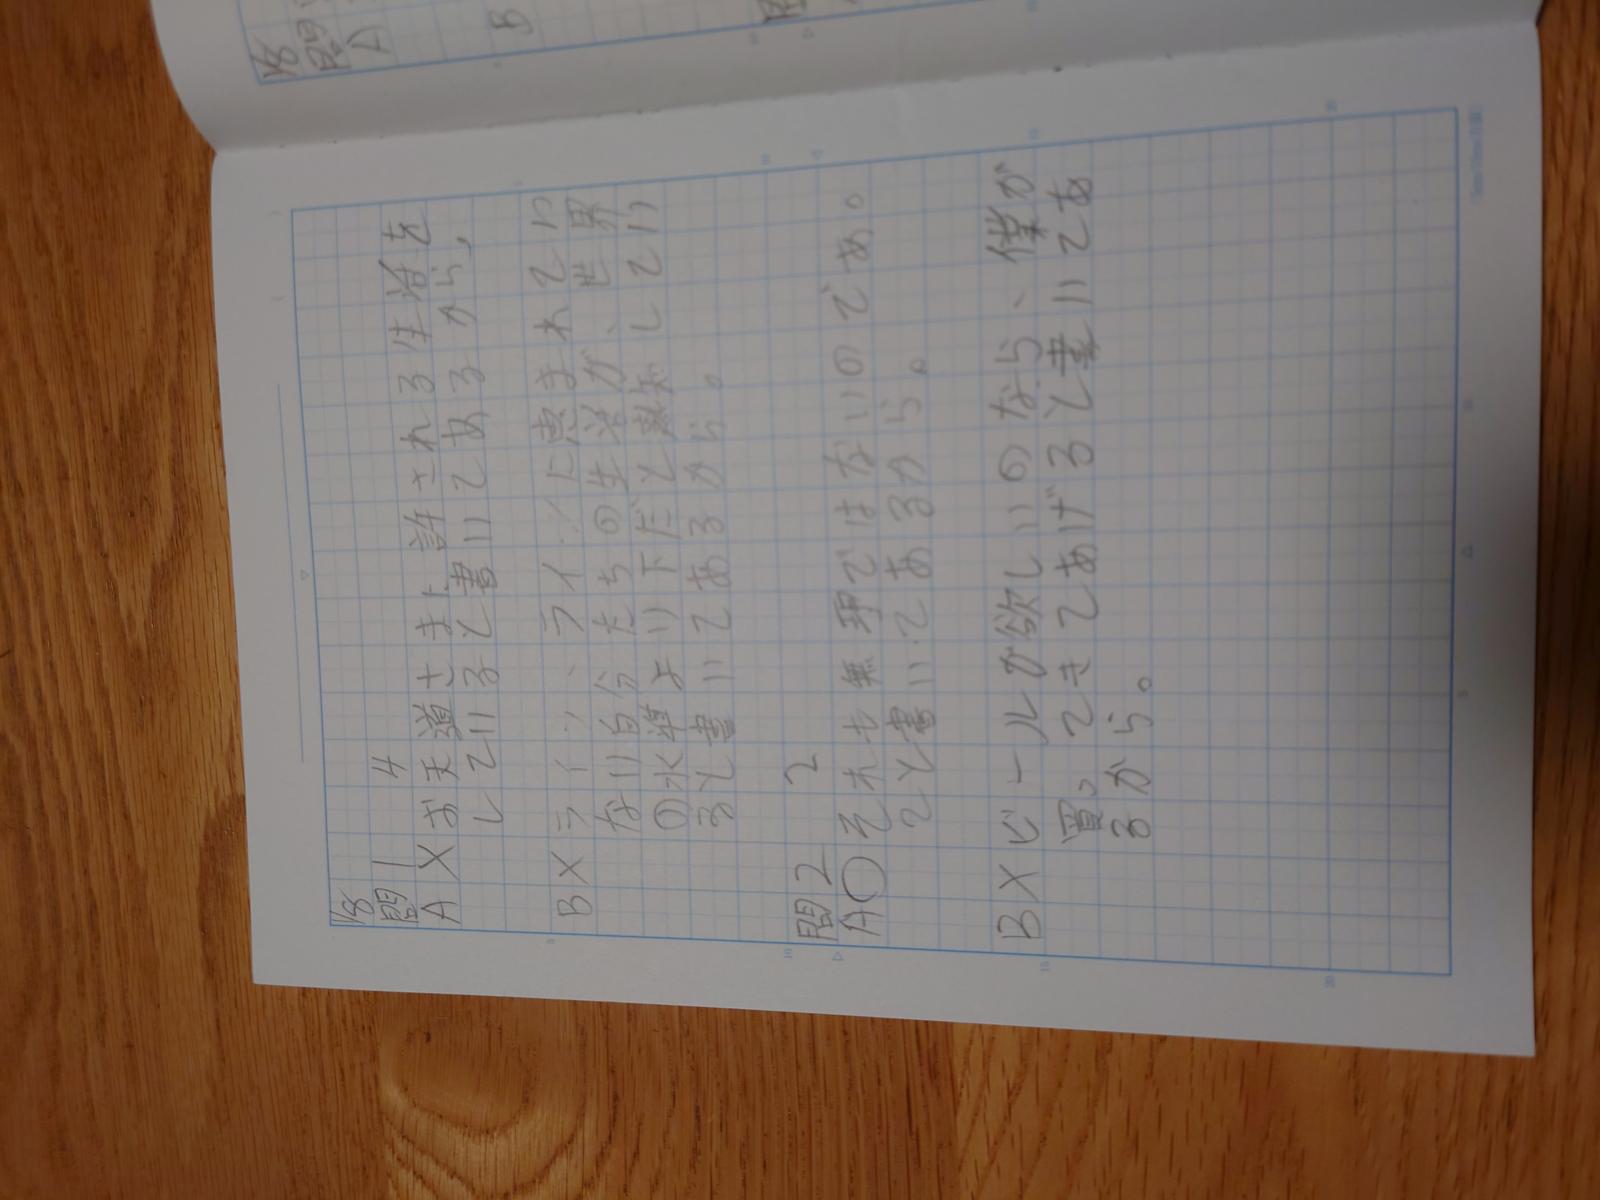 1/8
問1 4
A × お天道さまに許される生活を
していると書いてあるから,
B × ライバ、ライバに恵まれてい
ない自分たちの生活が、世界
の水準より下だと熟知してい
ると書いてあるから。
問2 2
A ○ それも無理ではないのであ。
てと書いてあるから。
B × ビールが欲しいのなら、僕が
買ってきてあげると書いてあ
るから。
1/8
問
A
B